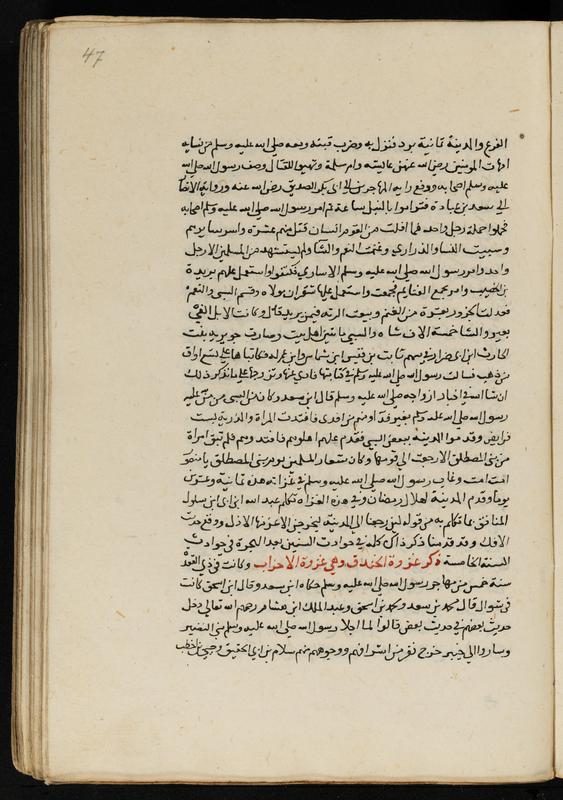 47
الفرع والمدينة ثمانية برد فنزل به وضرب قبته ومعه صلى الله عليه وسلم من نسايه
امهات المومنين رضي الله عنهن عايشة وام سلمة وتهيوا للقتال وصف رسول الله صلى الله
عليه وسلم اصحابه ودفع راية المهاجرين الى ابى بكر الصديق رضي الله عنه وراية الانصار
الى سعد بن عبادة فتراموا بالنبل ساعة ثم امر رسول الله صلى الله عليه وسلم اصحابه
فحملوا حملة رجل واحد فما افلت من القوم انسان قتل منهم عشرة واسر سايرهم
وسبيت النسا والذراري وغنمت النعم والشا ولم يستشهد من المسلمين الا رجل
واحد وامر رسول الله صلى الله عليه وسلم بالاسارى فكتفوا واستعمل عليهم بريدة
بن الحصيب وامر بجمع الغنايم فجمعت واستعمل عليها شقران مولاه وقسم السبي والنعم
فعدلت الجزور بعشرة من الغنم وبيعت الرثة فيمن يزيد قال وكانت الابل الفي
بعير والشا خمسة الاف شاة والسبي مايتين اهل بيت وصارت جويرية بنت
الحارث ابن ابي ضرار في سهم ثابت بن قيس ابن شماس وابن عم له فكاتباها على تسع اواق
من ذهب فسالت رسول الله صلى الله عليه وسلم في كتابتها فادى عنها وتزوجها على ما نذكر ذلك
ان شا الله في اخبار ازواجه صلى الله عليه وسلم قال ابن سعد وكان من السبي من من عليه
رسول الله صلى الله عليه وسلم بغير فدا ومنهم من افدى فافتدت المراة والذرية بست
فرايض وقدموا المدينة ببعض السبي فقدم عليهم اهلوهم فافتدوهم فلم تبق امراة
من بني المصطلق الا رجعت الى قومها وكان شعار المسلمين يوم بني المصطلق يا منصور
امت امت وغاب رسول الله صلى الله عليه وسلم في غزاته هذه ثمانية وعشرين
يوما وقدم المدينة لهلال رمضان وفي هذه الغزاة تكلم عبد الله ابن ابى ابن سلول
المنافق بما تكلم به من قوله لئن رجعنا الى المدينة ليخرجن الاعز منها الاذل ووقع حديث
الافك وقد قدمنا ذكر ذلك كله في حوادث السنين بعد الهجرة في حوادث
السنة الخامسة ذكر غزوة الخندق وهي غزوة الاحزاب وكانت في ذي القعدة
سنة خمس من مهاجر رسول الله صلى الله عليه وسلم حكاه ابن سعد وقال ابن اسحق كانت
في شوال قال محمد بن سعد ومحمد بن اسحق وعبد الملك ابن هشام رحمهم الله تعالى دخل
حديث بعضهم في حديث بعض قالوا لما اجلا رسول الله صلى الله عليه وسلم بني النضير
وساروا الى خيبر خرج نفر من اشرافهم ووجوههم منهم سلام بن ابي الحقيق وحيي بن اخطب